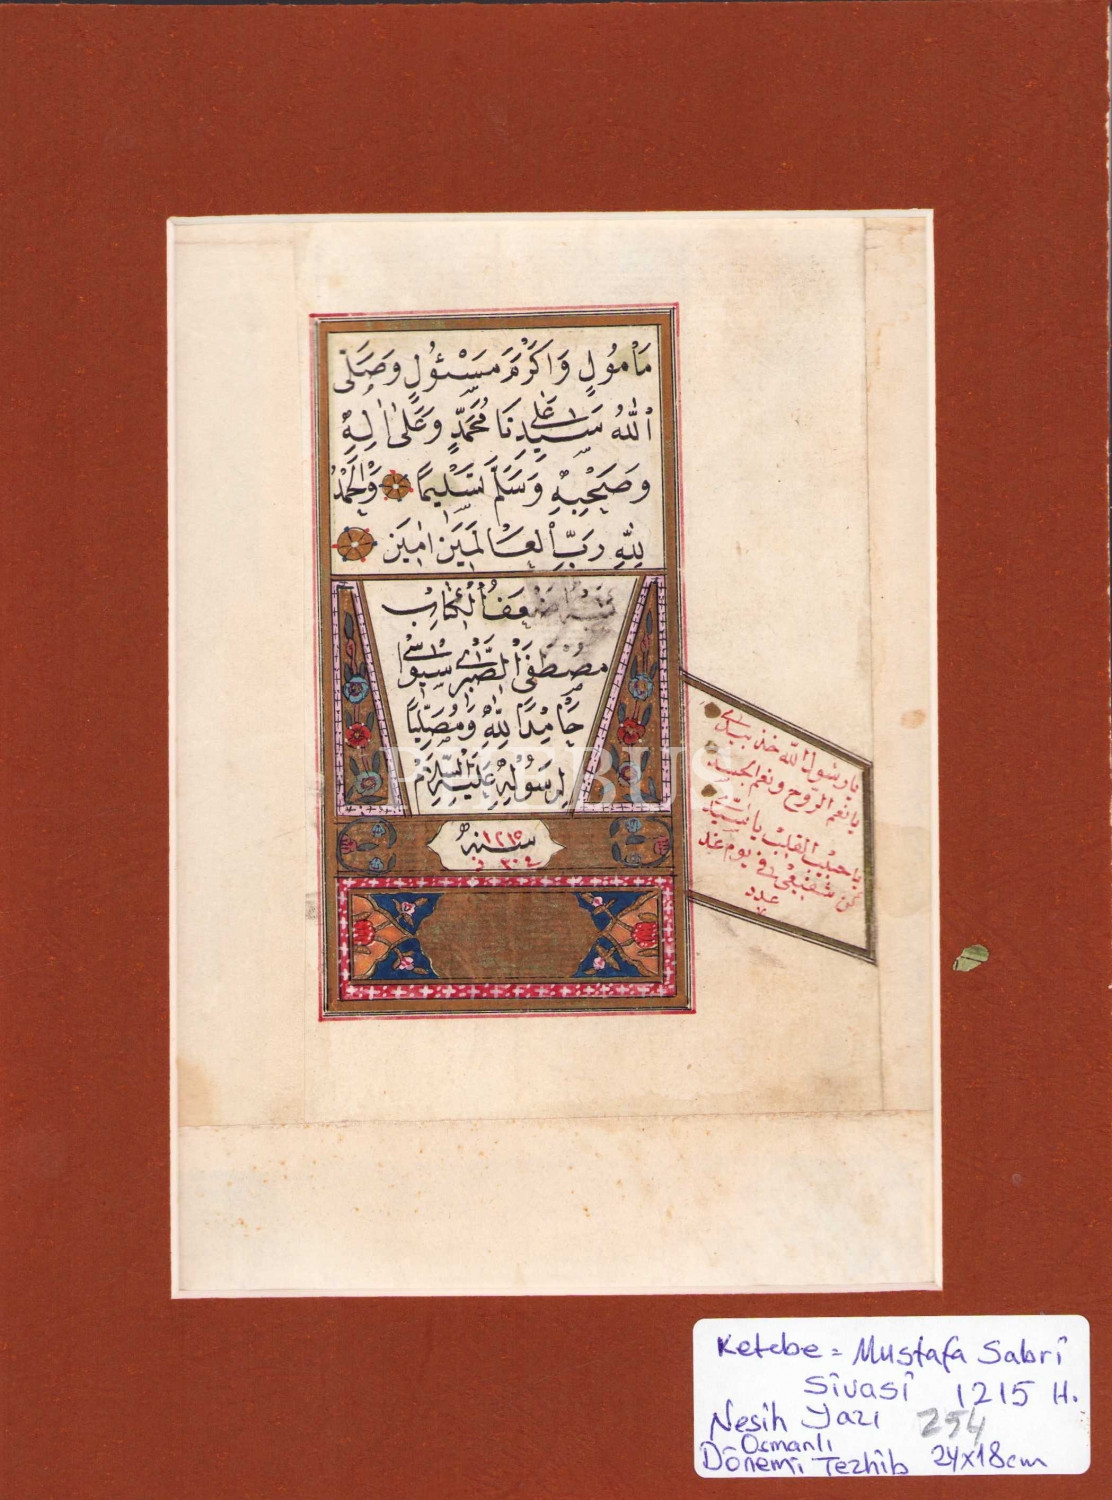 مَأْمُولٍ وَاَكْرَمَ مَسْئُولٍ وَصَلَّى
اللّٰهُ عَلٰى سَيِّدِنَا مُحَمَّدٍ وَعَلٰى اٰلِهِ
وَصَحْبِهِ وَسَلَّمَ تَسْلِيمًا وَالْحَمْدُ
لِلّٰهِ رَبِّ الْعَالَمِينَ اٰمِينَ
كتبه اضعف الكاتب
مصطفى الصبرى سيواسى
حَامِدًا لِلّٰهِ وَمُصَلِّيًا
لِرَسُولِهِ عَلَيْهِ السَّلَامْ
سنه ١٢١٥
يا رسول الله خذ بيدى
يا نعم الروح ونعم الجسد
يا حبيب القلب يا سيدى
كن شفيعى فى يوم غد
عدد
٧
PHEBUS
Ketebe = Mustafa Sabrî
Sîvasî 1215 H.
Nesih Yazı 254
Osmanlı
Dönemi Tezhib 24x18cm